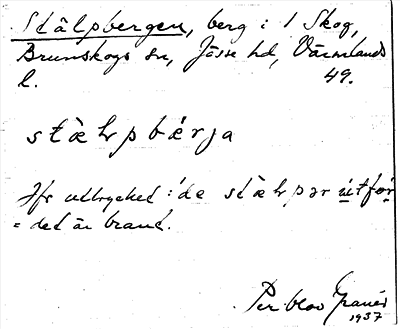 Stälpbergen, berg i 1 Skog,
Brunskogs sn, Jösse hd, Värmlands
l. 49.
stæ̀lpbǽrja
Jfr uttrycket: de stæ̀lpər útfǫr
= det är brant.
Per Olov Granér
1937